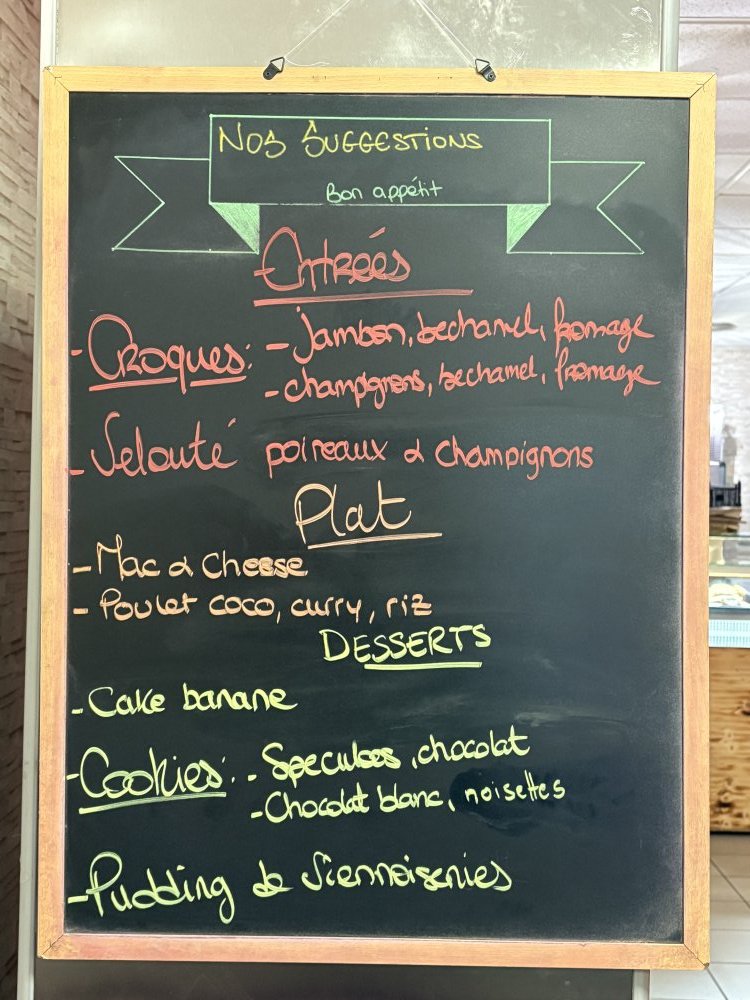 Nos Suggestions
Bon appétit
Entrées
- Croques: - jambon, bechamel, fromage
- champignons, bechamel, fromage
- Velouté poireaux & champignons
Plat
- Mac & Cheese
- Poulet coco, curry, riz
DESSERTS
- Cake banane
- Cookies: - Speculoos, chocolat
- Chocolat blanc, noisettes
- Pudding de Viennoiseries